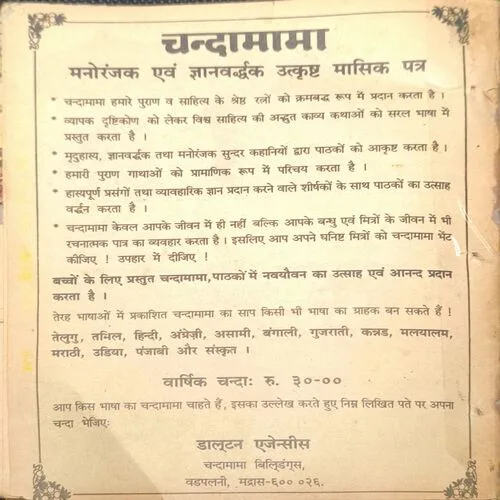 चन्दामामा
मनोरंजक एवं ज्ञानवर्द्धक उत्कृष्ट मासिक पत्र
* चन्दामामा हमारे पुराण व साहित्य के श्रेष्ठ रत्नों को क्रमबद्ध रूप में प्रदान करता है ।
* व्यापक दृष्टिकोण को लेकर विश्व साहित्य की अद्भुत काव्य कथाओं को सरल भाषा में
प्रस्तुत करता है ।
* मृदुहास्य, ज्ञानवर्द्धक तथा मनोरंजक सुन्दर कहानियों द्वारा पाठकों को आकृष्ट करता है ।
* हमारी पुराण गाथाओं को प्रामाणिक रूप में परिचय करता है ।
* हास्यपूर्ण प्रसंगों तथा व्यावहारिक ज्ञान प्रदान करने वाले शीर्षकों के साथ पाठकों का उत्साह
वर्द्धन करता है ।
* चन्दामामा केवल आपके जीवन में ही नहीं बल्कि आपके बन्धु एवं मित्रों के जीवन में भी
रचनात्मक पात्र का व्यवहार करता है । इसलिए आप अपने घनिष्ट मित्रों को चन्दामामा भेंट
कीजिए ! उपहार में दीजिए !
बच्चों के लिए प्रस्तुत चन्दामामा,पाठकों में नवयौवन का उत्साह एवं आनन्द प्रदान
करता है ।
तेरह भाषाओं में प्रकाशित चन्दामामा का साप किसी भी भाषा का ग्राहक बन सकते हैं !
तेलुगु, तमिल, हिन्दी, अंग्रेज़ी, असामी, बंगाली, गुजराती, कन्नड, मलयालम,
मराठी, उडिया, पंजाबी और संस्कृत ।
वार्षिक चन्दाः रु. ३०-००
आप किस भाषा का चन्दामामा चाहते हैं, इसका उल्लेख करते हुए निम्न लिखित पते पर अपना
चन्दा भेजिएः
डाल्टन एजेन्सीस
चन्दामामा बिल्डिंग्स,
वडपलनी, मद्रास-६०० ०२६.